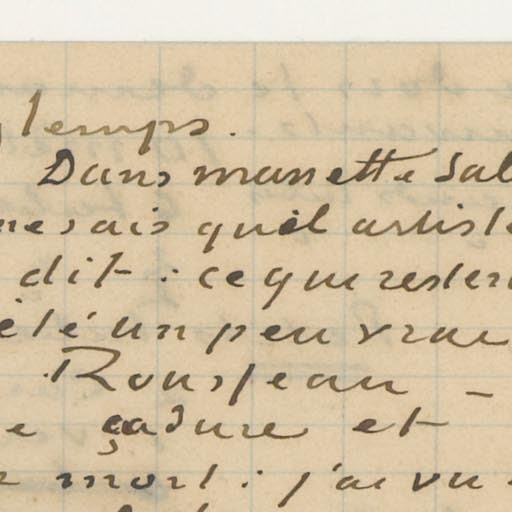 temps.
Dans manette Sal
ne sais quel artiste
dit : ce qui rester
été un peu vrai
Rousseau –
e et
mort : j'ai vu